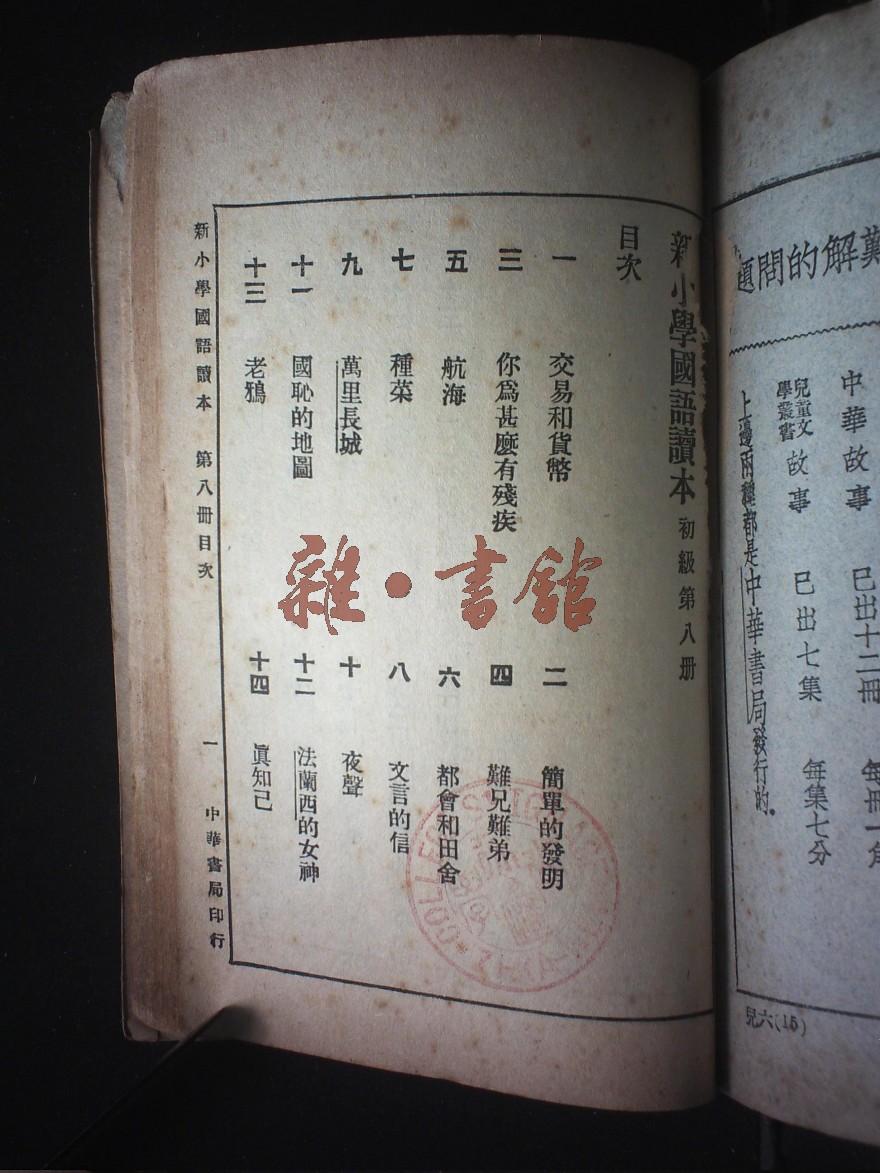 新小學國語讀本 初級第八册
目次
一 交易和貨幣
二 簡單的發明
三 你爲甚麽有殘疾
四 難兄難弟
五 航海
六 都會和田舍
七 種菜
八 文言的信
九 萬里長城
十 夜聲
十一 國恥的地圖
十二 法蘭西的女神
十三 老鴉
十四 眞知己
新小學國語讀本 第八册目次 一 中華書局印行
雜·書館
難解的問題
中華故事 已出十二冊 每冊一角
兒童文學叢書 故事 已出七集 每集七分
上邊兩種都是中華書局發行的.
兒六(15)